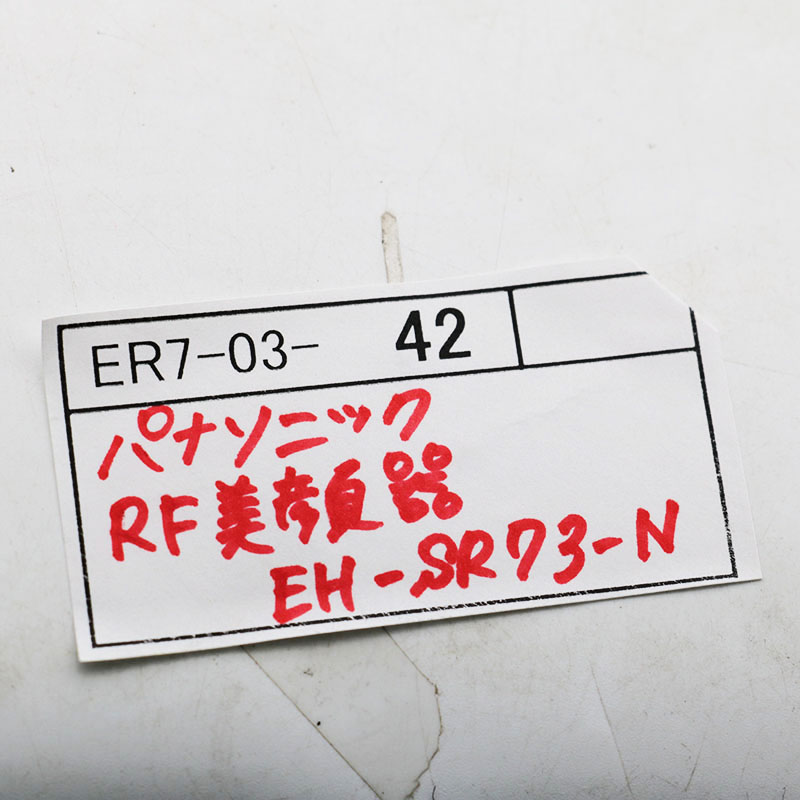 ER7-03- 42
パナソニック
RF美顔器
EH-SR73-N